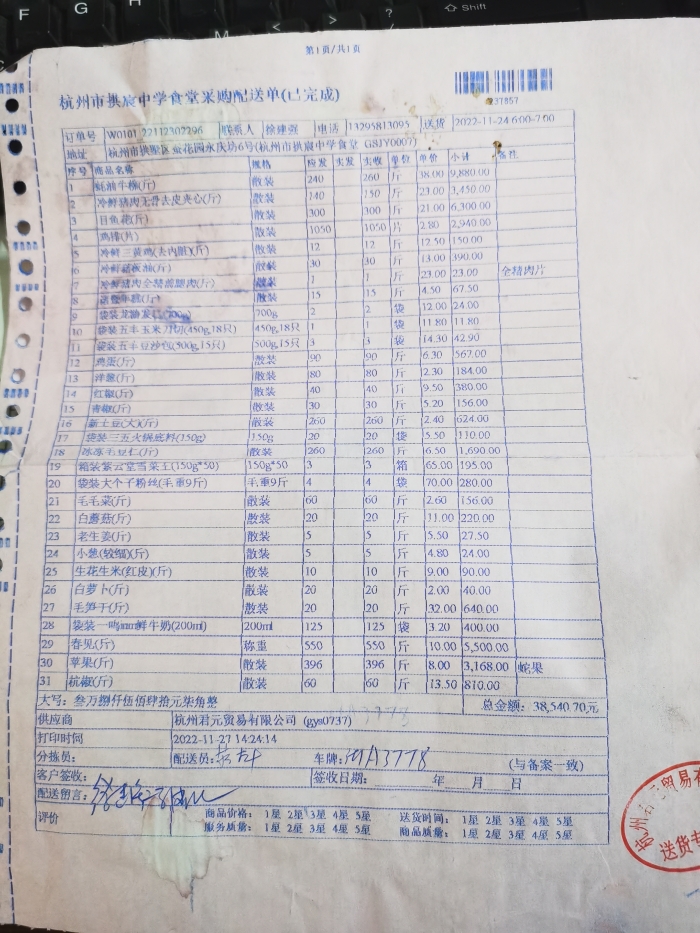 第1页/共1页
杭州市拱宸中学食堂采购配送单(已完成)
237857
订单号 W0101 22112302296 联系人 徐建强 电话 13295813095 送货 2022-11-24 6:00-7:00
地址 杭州市拱墅区 永庆坊6号(杭州市拱宸中学食堂 GSJY0007)
序号 商品名称 规格 应发 实发 实收 单位 单价 小计 备注
1 蚝油牛柳(斤) 散装 240 260 斤 38.00 9,880.00
2 冷鲜猪肉无骨去皮夹心(斤) 散装 140 150 斤 23.00 3,450.00
3 目鱼花(斤) 散装 300 300 斤 21.00 6,300.00
4 鸡排(片) 散装 1050 1050 片 2.80 2,940.00
5 冷鲜三黄鸡(去内脏)(斤) 散装 12 12 斤 12.50 150.00
6 冷鲜猪板油(斤) 散装 30 30 斤 13.00 390.00
7 冷鲜猪肉全精 (斤) 散装 1 1 斤 23.00 23.00 全精肉片
8 年糕(斤) 散装 15 15 斤 4.50 67.50
9 袋装 (700g) 700g 2 2 袋 12.00 24.00
10 袋装五丰玉米刀切(450g,18只) 450g,18只 1 1 袋 11.80 11.80
11 袋装五丰豆沙包(500g,15只) 500g,15只 3 3 袋 14.30 42.90
12 鸡蛋(斤) 散装 90 90 斤 6.30 567.00
13 洋葱(斤) 散装 80 80 斤 2.30 184.00
14 红椒(斤) 散装 40 40 斤 9.50 380.00
15 青椒(斤) 散装 30 30 斤 5.20 156.00
16 新土豆(大)(斤) 散装 260 260 斤 2.40 624.00
17 袋装三五火锅底料(150g) 150g 20 20 袋 5.50 110.00
18 冰冻毛豆仁(斤) 散装 260 260 斤 6.50 1,690.00
19 箱装紫云堂雪菜王(150g*50) 150g*50 3 3 箱 65.00 195.00
20 袋装大个子粉丝(毛重9斤) 毛重9斤 4 4 袋 70.00 280.00
21 毛毛菜(斤) 散装 60 60 斤 2.60 156.00
22 白蘑菇(斤) 散装 20 20 斤 11.00 220.00
23 老生姜(斤) 散装 5 5 斤 5.50 27.50
24 小葱(较细)(斤) 散装 5 5 斤 4.80 24.00
25 生花生米(红皮)(斤) 散装 10 10 斤 9.00 90.00
26 白萝卜(斤) 散装 20 20 斤 2.00 40.00
27 毛笋干(斤) 散装 20 20 斤 32.00 640.00
28 袋装一鸣 鲜牛奶(200ml) 200ml 125 125 袋 3.20 400.00
29 春见(斤) 称重 550 550 斤 10.00 5,500.00
30 苹果(斤) 散装 396 396 斤 8.00 3,168.00 蛇果
31 杭椒(斤) 散装 60 60 斤 13.50 810.00
大写: 叁万捌仟伍佰肆拾元柒角整 总金额: 38,540.70元
供应商 杭州君元贸易有限公司 (gys0737)
打印时间 2022-11-27 14:24:14
分拣员: 配送员: 车牌: A3778 (与备案一致)
客户签收: 签收日期: 年 月 日
配送留言:
评价 商品价格: 1星 2星 3星 4星 5星 送货时间: 1星 2星 3星 4星 5星
服务质量: 1星 2星 3星 4星 5星 商品质量: 1星 2星 3星 4星 5星
杭州君元贸易有
送货专